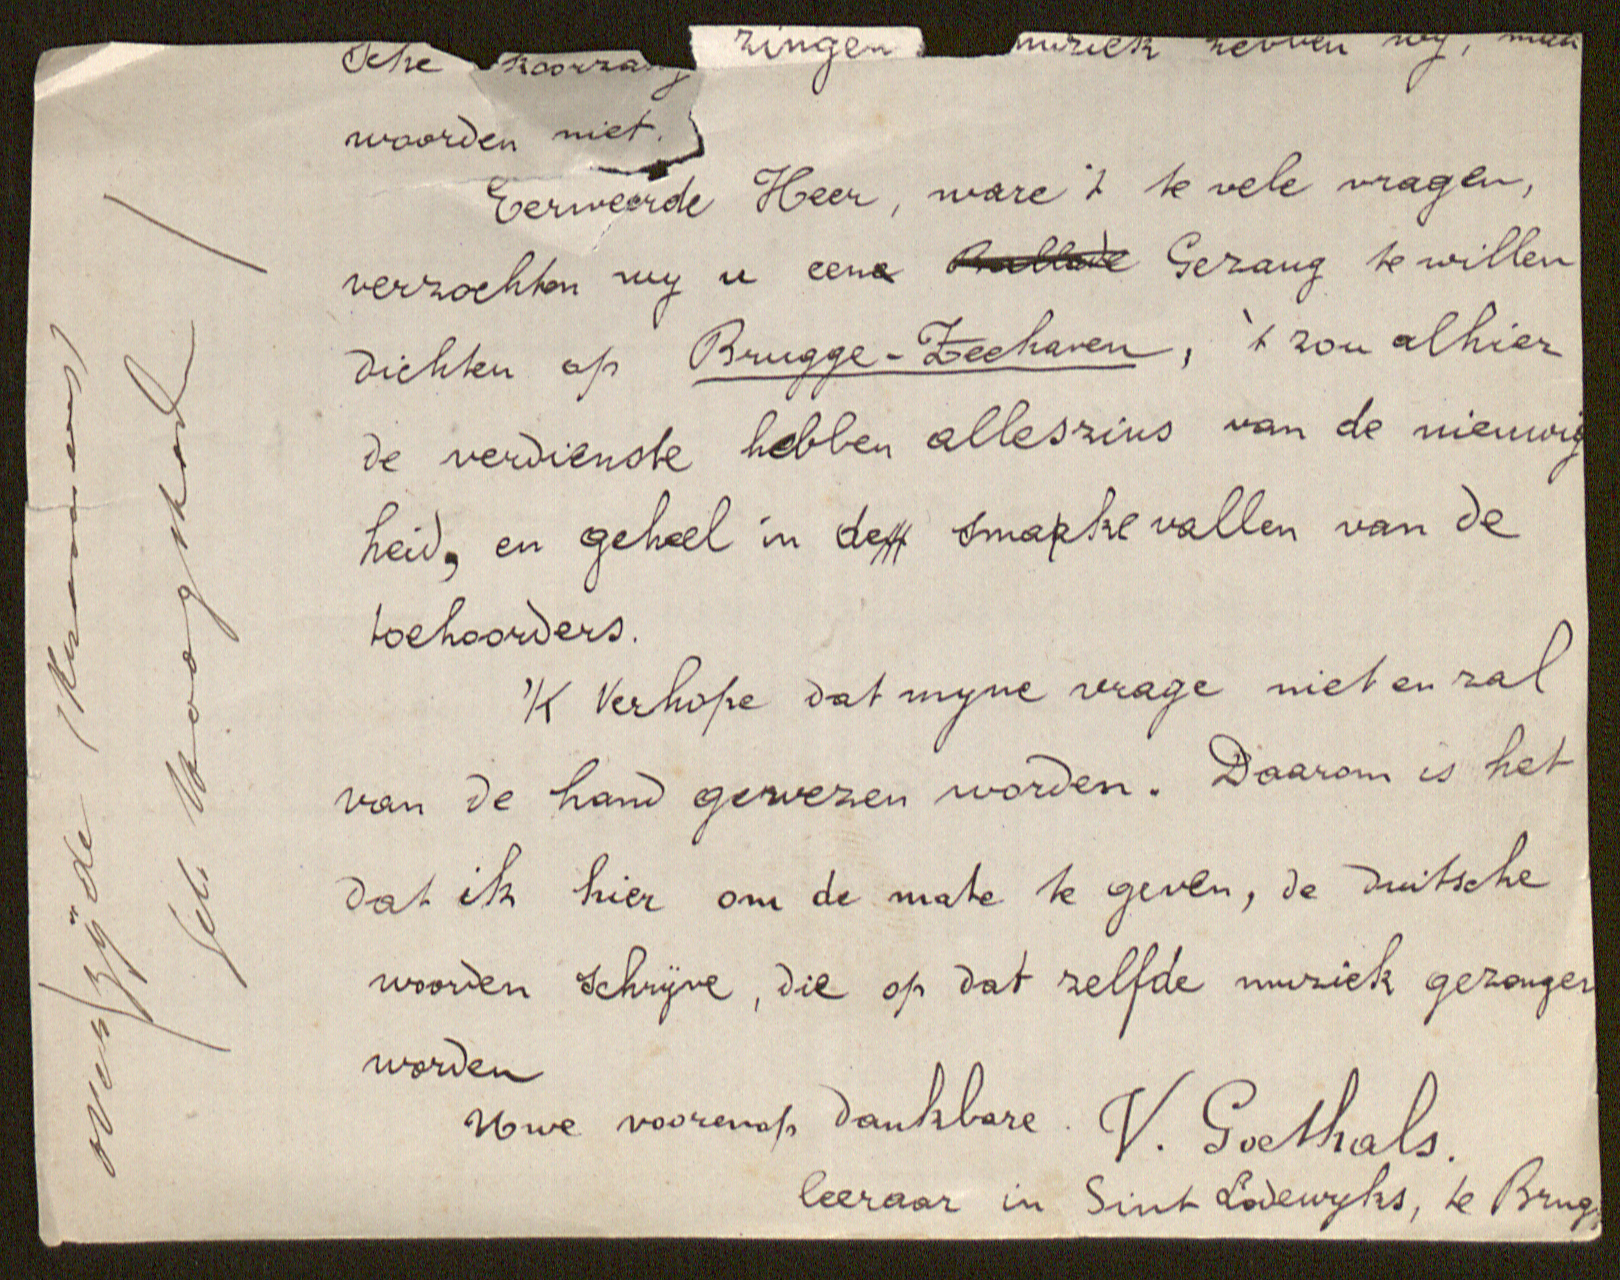 sche koorzang zingen muziek hebben wy, maar
woorden niet.
Eerweerde Heer, ware 't te vele vragen,
verzochten wy u eene Ballade Gezang te willen
dichten op Brugge-Zeehaven, 't zou alhier
de verdienste hebben alleszins van de nieuwig
heid, en geheel in de smake vallen van de
toehoorders.
'K Verhope dat myne vrage niet en zal
van de hand gewezen worden. Daarom is het
dat ik hier om de mate te geven, de duitsche
woorden schrijve, die op dat zelfde muziek gezongen
worden
Uwe voorenop dankbare V. Goethals.
leeraar in Sint Lodewyks, te Brug
overzijde